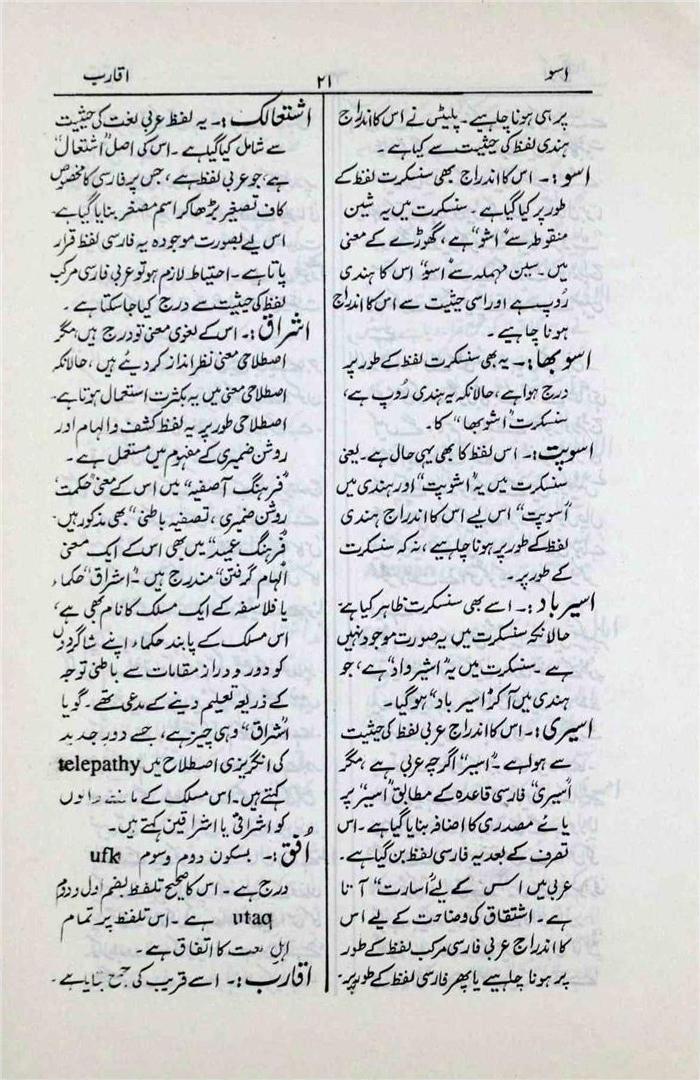 اسو
۲۱
اقارب
پر ہی ہونا چاہیے۔ پلیٹس نے اس کا اندراج
ہندی لفظ کی حیثیت سے کیا ہے۔
اسو:۔ اس کا اندراج بھی سنسکرت لفظ کے
طور پر کیا گیا ہے۔ سنسکرت میں یہ شین
منقوطہ سے "اشو" ہے، گھوڑے کے معنی
میں۔ سین مہملہ سے "اسو" اس کا ہندی
رُوپ ہے اور اسی حیثیت سے اس کا اندراج
ہونا چاہیے۔
اسوبھا:۔ یہ بھی سنسکرت لفظ کے طور پر
درج ہوا ہے، حالانکہ یہ ہندی رُوپ ہے،
سنسکرت "اشوبھا" کا۔
اسوپت:۔ اس لفظ کا بھی یہی حال ہے۔ یعنی
سنسکرت میں یہ "اشوپت" اور ہندی میں
"اسوپت" اس لیے اس کا اندراج ہندی
لفظ کے طور پر ہونا چاہیے، نہ کہ سنسکرت
کے طور پر۔
اسیرباد:۔ اسے بھی سنسکرت ظاہر کیا ہے
حالانکہ سنسکرت میں یہ صورت موجود نہیں
ہے۔ سنسکرت میں یہ "اشیرواد" ہے، جو
ہندی میں آکر "اسیرباد" ہوگیا۔
اسیری:۔ اس کا اندراج عربی لفظ کی حیثیت
سے ہوا ہے۔ "اسیر" اگرچہ عربی ہے مگر
"اسیری" فارسی قاعدہ کے مطابق "اسیر" پر
یائے مصدری کا اضافہ بنایا گیا ہے۔ اس
تصرف کے بعد یہ فارسی لفظ بن گیا ہے۔
عربی میں اس کے لیے "اسارت" آتا
ہے۔ اشتقاق کی وضاحت کے لیے اس
کا اندراج عربی فارسی مرکب لفظ کے طور
پر ہونا چاہیے یا پھر فارسی لفظ کے طور پر۔
اشتعالک:۔ یہ لفظ عربی لغت کی حیثیت
سے شامل کیا گیا ہے۔ اس کی اصل "اشتعال"
ہے جو عربی لفظ ہے، جس پر فارسی کا مخصوص
کاف تصغیر بڑھا کر اسم مصغر بنایا گیا ہے۔
اس لیے بصورت موجودہ یہ فارسی لفظ قرار
پاتا ہے۔ احتیاط لازم ہو تو عربی فارسی مرکب
لفظ کی حیثیت سے درج کیا جاسکتا ہے۔
اشراق:۔ اس کے لغوی معنی تو درج ہیں، مگر
اصطلاحی معنی نظر انداز کر دیئے ہیں، حالانکہ
اصطلاحی معنی میں یہ بکثرت استعمال ہوتا ہے۔
اصطلاحی طور پر یہ لفظ کشف و الہام اور
روشن ضمیری کے مفہوم میں مستعمل ہے۔
"فرہنگ آصفیہ" میں اس کے معنی "حکمت،
روشن ضمیری، تصفیہ باطنی" بھی مذکور ہیں۔
"فرہنگ عمید" میں بھی اس کے ایک معنی
"الہام گرفتن" مندرج ہیں۔ "اشراق" حکماء
یا فلاسفہ کے ایک مسلک کا نام بھی ہے،
اس مسلک کے پابند حکماء اپنے شاگردوں
کو دور و دراز مقامات سے باطنی توجہ
کے ذریعہ تعلیم دینے کے مدعی تھے۔ گویا
"اشراق" وہی چیز ہے، جسے دورِ جدید
کی انگریزی اصطلاح میں telepathy
کہتے ہیں۔ اس مسلک کے ماننے والوں
کو اشراقی یا اشراقین کہتے ہیں۔
اُفُق:۔ بسکون دوم و سوم ufk
درج ہے۔ اس کا صحیح تلفظ بضم اول و دوم
utaq ہے۔ اس تلفظ پر تمام
اہلِ لغت کا اتفاق ہے۔
اقارب:۔ اسے قریب کی جمع بتایا ہے۔